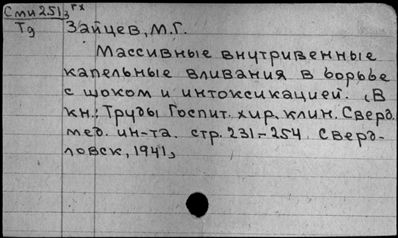 Сми251з гх
Тд Зайцев, М.Г.
Массивные внутривенные
капельные вливания в борьбе
с шоком и интоксикацией. (В
кн.: Труды Госпит. хир. клин. Сверд.
мед. ин-та. стр. 231-254 Сверд-
ловск, 1941,